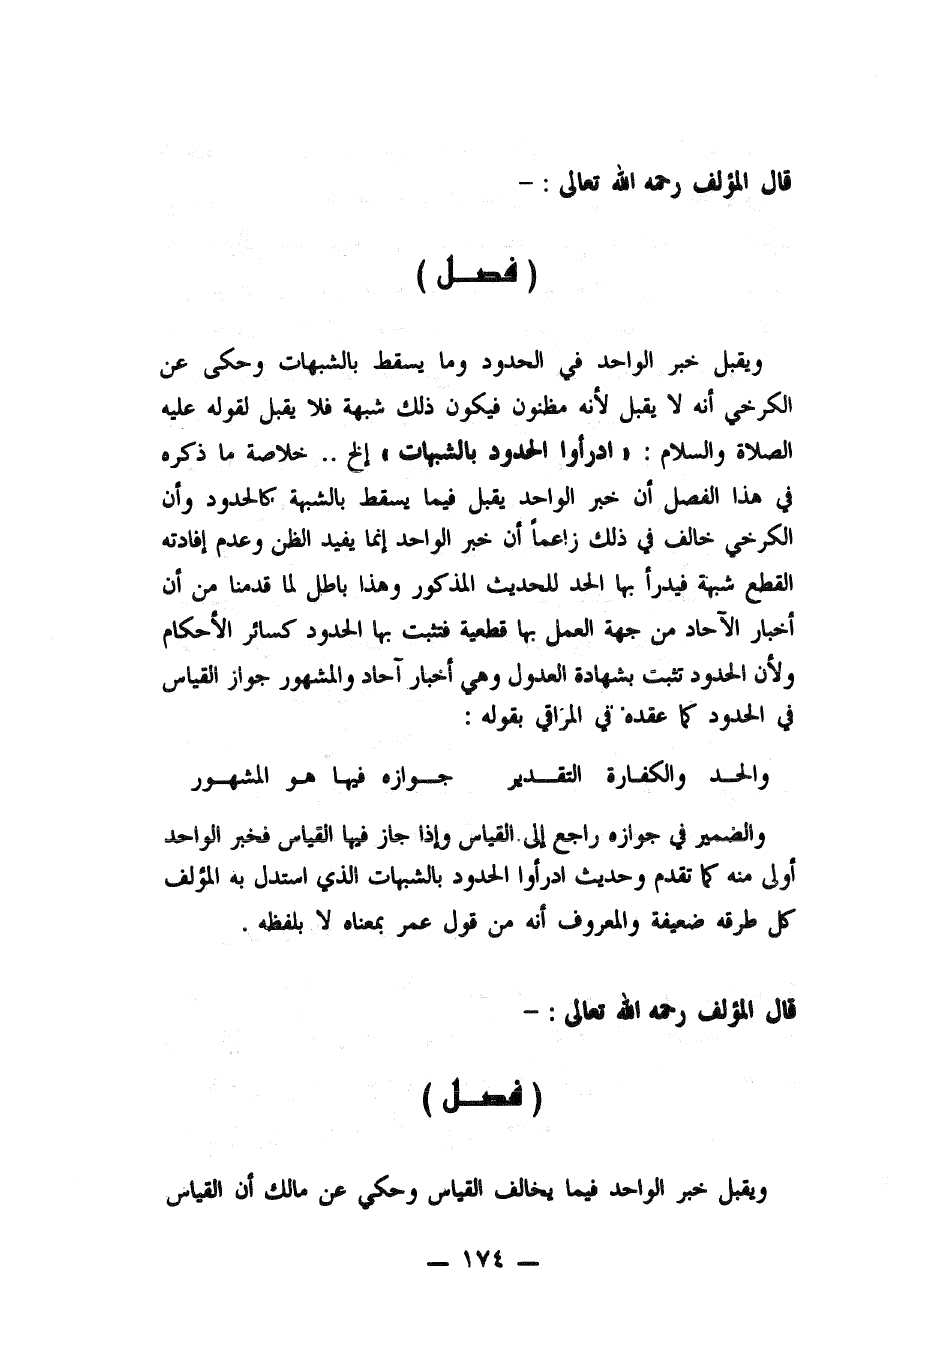 قال المؤلف رحمه الله تعالى : –
( فصــل )
ويقبل خبر الواحد في الحدود وما يسقط بالشبهات وحكى عن
الكرخي أنه لا يقبل لأنه مظنون فيكون ذلك شبهة فلا يقبل لقوله عليه
الصلاة والسلام : « ادرأوا الحدود بالشبهات » إلخ .. خلاصة ما ذكره
في هذا الفصل أن خبر الواحد يقبل فيما يسقط بالشبهة كالحدود وأن
الكرخي خالف في ذلك زاعماً أن خبر الواحد إنما يفيد الظن وعدم إفادته
القطع شبهة فيدرأ بها الحد للحديث المذكور وهذا باطل لما قدمنا من أن
أخبار الآحاد من جهة العمل بها قطعية فتثبت بها الحدود كسائر الأحكام
ولأن الحدود تثبت بشهادة العدول وهي أخبار آحاد والمشهور جواز القياس
في الحدود كما عقده في المراقي بقوله :
والحــد والكفـارة التقــدير جــوازه فيهـا هـو المشهـور
والضمير في جوازه راجع إلى القياس وإذا جاز فيها القياس فخبر الواحد
أولى منه كما تقدم وحديث ادرأوا الحدود بالشبهات الذي استدل به المؤلف
كل طرقه ضعيفة والمعروف أنه من قول عمر بمعناه لا بلفظه .
قال المؤلف رحمه الله تعالى : –
( فصــل )
ويقبل خبر الواحد فيما يخالف القياس وحكي عن مالك أن القياس
— ١٧٤ —